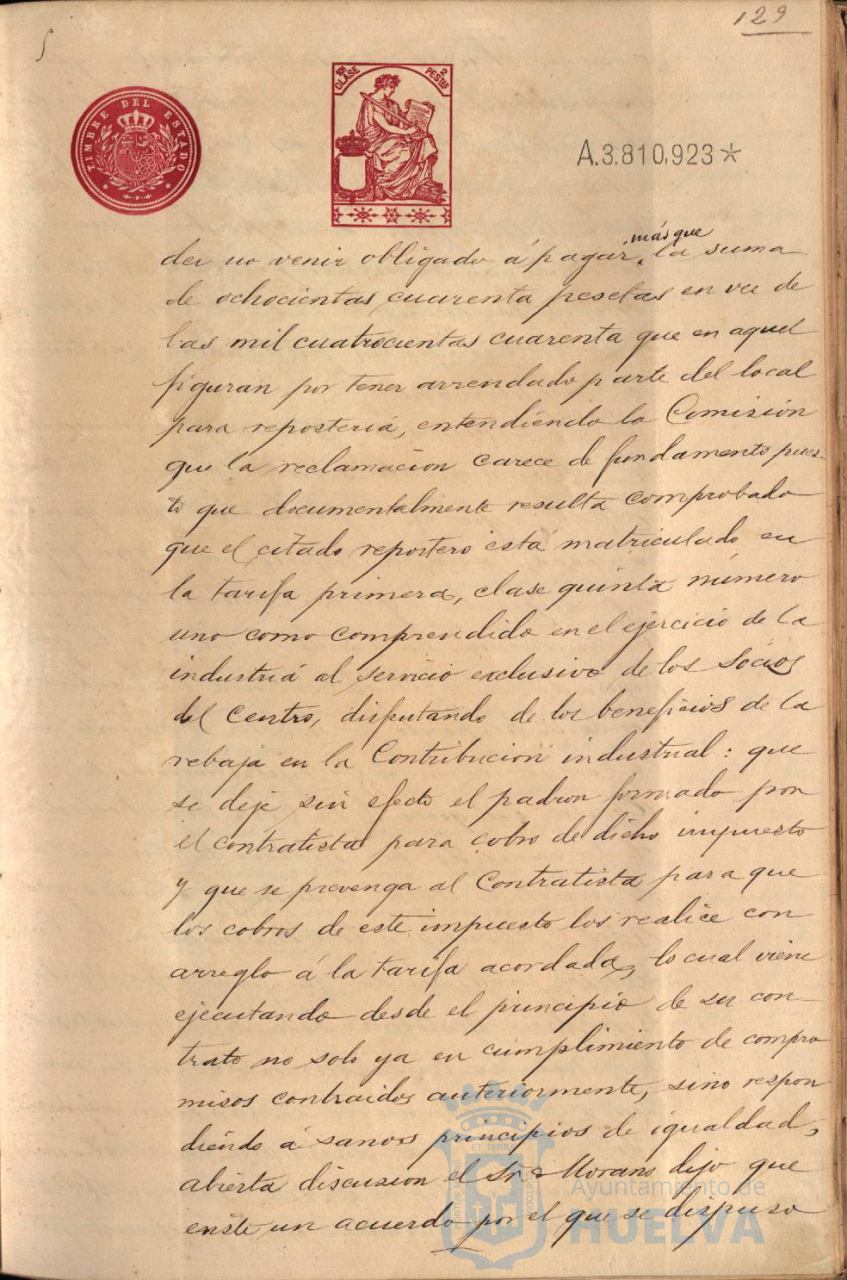 129
TIMBRE DEL ESTADO
10ª CLASE 2 PESTAS
A.3.810,923*
más que
der no venir obligado á pagar la suma
de ochocientas cuarenta pesetas en vez de
las mil cuatrocientas cuarenta que en aquel
figuran por tener arrendado parte del local
para reposteria, entendiendo la Comisión
que la reclamación carece de fundamento pues
to que documentalmente resulta comprobado
que el citado repostero está matriculado en
la tarifa primera, clase quinta número
uno como comprendido en el ejercicio de la
industria al servicio exclusivo de los Socios
del Centro, disputando de los beneficios de la
rebaja en la Contribucion industrial: que
se deje sin efecto el padron formado por
el contratista para cobro de dicho impuesto
y que se prevenga al Contratista para que
los cobros de este impuesto los realice con
arreglo á la tarifa acordada, lo cual viene
ejecutando desde el principio de su con
trato no solo ya en cumplimiento de compro
misos contraidos anteriormente, sino respon
diendo á sanos principios de igualdad,
abierta discusion el Sr. Morano dijo que
existe un acuerdo por el que se dispuso
Ayuntamiento de
HUELVA